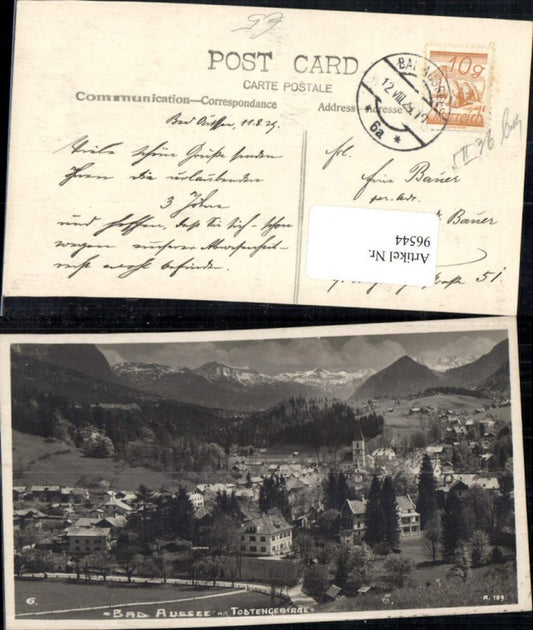 POST CARD
CARTE POSTALE
Communication—Correspondance
Address—Adresse
10 g
12.VIII.25
* 6a *
Bad Aussee, 11.8.25.
Viele schöne Grüße senden
Ihnen die urlaubenden
3 Johne
und hoffen, daß Sie sich schon
wegen unserer Abwesenheit
recht wohl befinden.
Frl.
Bauer
per. Adr.
Bauer
51
Artikel Nr.
96544
6.
"BAD AUSSEE M. TODTENGEBIRGE"
R. 109